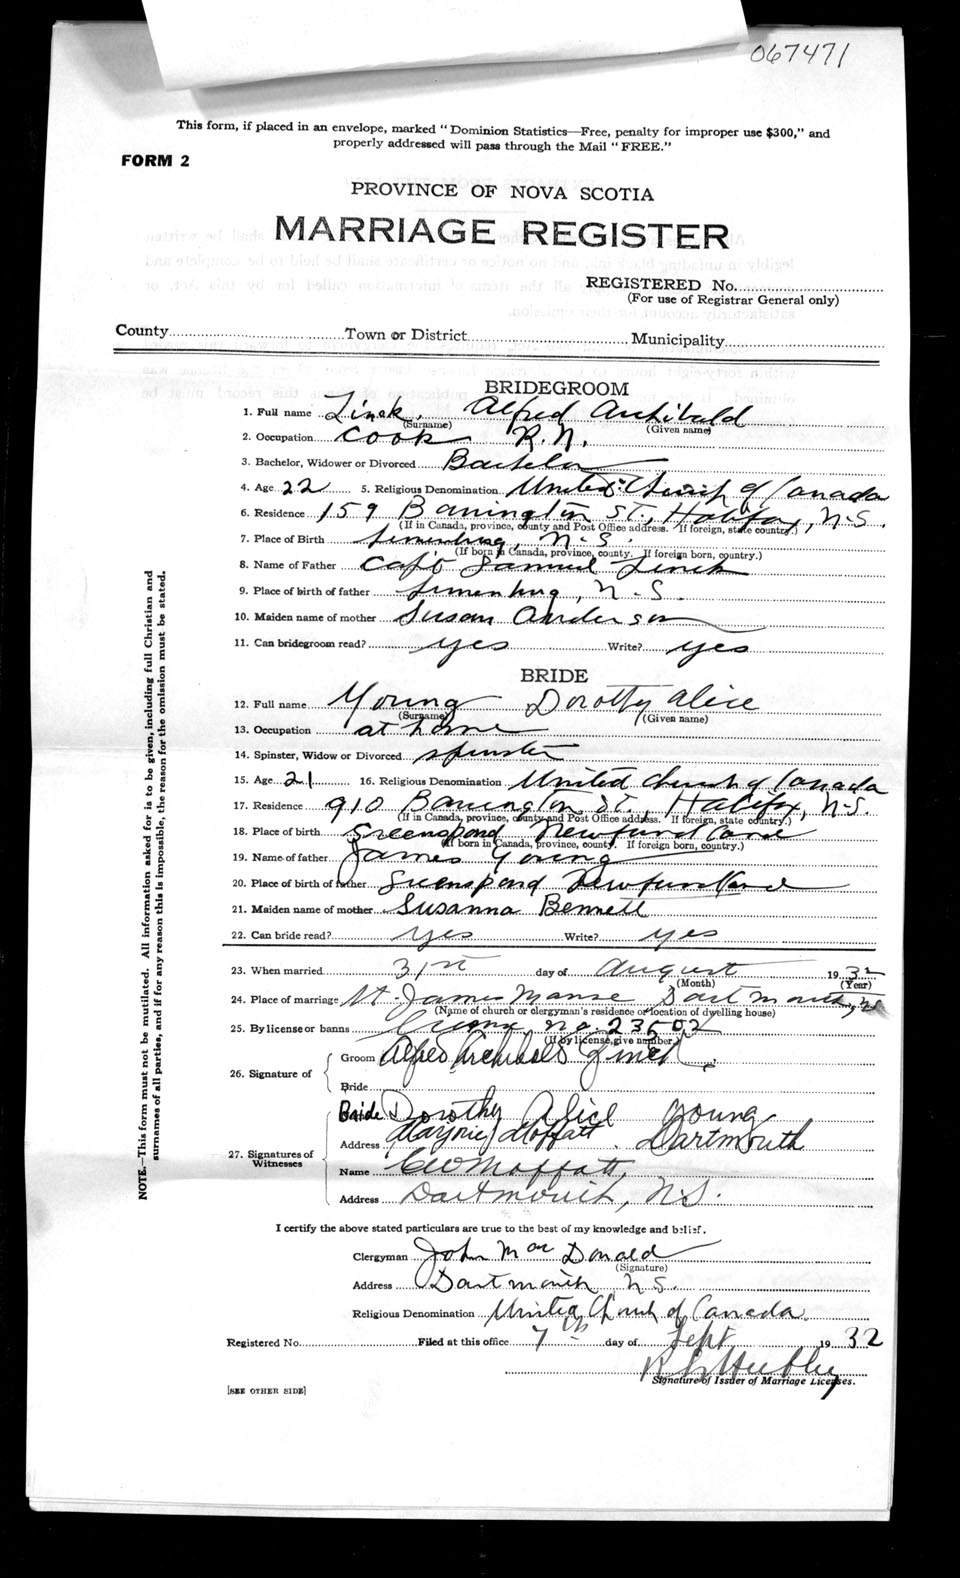 067471
This form, if placed in an envelope, marked "Dominion Statistics—Free, penalty for improper use $300," and
properly addressed will pass through the Mail "FREE."
FORM 2
PROVINCE OF NOVA SCOTIA
MARRIAGE REGISTER
REGISTERED No.
(For use of Registrar General only)
County Town or District Municipality
BRIDEGROOM
1. Full name Zinck, Alfred Archibald
(Surname) (Given name)
2. Occupation Cook R.N.
3. Bachelor, Widower or Divorced Bachelor
4. Age 22 5. Religious Denomination United Church of Canada
6. Residence 159 Barrington St., Halifax, N-S.
(If in Canada, province, county and Post Office address. If foreign, state country.)
7. Place of Birth Lunenburg, N-S.
(If born in Canada, province, county. If foreign born, country.)
8. Name of Father Capt Samuel Zinck
9. Place of birth of father Lunenburg, N-S.
10. Maiden name of mother Susan Anderson
11. Can bridegroom read? yes Write? yes
BRIDE
12. Full name Young Dorothy Alice
(Surname) (Given name)
13. Occupation at home
14. Spinster, Widow or Divorced spinster
15. Age 21 16. Religious Denomination United Church of Canada
17. Residence 910 Barrington St., Halifax, N-S.
(If in Canada, province, county and Post Office address. If foreign, state country.)
18. Place of birth Greenspond Newfoundland
(If born in Canada, province, county. If foreign born, country.)
19. Name of father James Young
20. Place of birth of father Greenspond Newfoundland
21. Maiden name of mother Susanna Bennett
22. Can bride read? yes Write? yes
23. When married 31st day of August 1932
(Month) (Year)
24. Place of marriage St. James Manse Dartmouth, NS
(Name of church or clergyman's residence or location of dwelling house)
25. By license or banns License no. 23502
(If by license, give number.)
26. Signature of Groom Alfred Archibald Zinck
Bride
Bride Dorothy Alice Young
Address Marjorie Moffatt. Dartmouth
27. Signatures of Witnesses
Name CW Moffatt,
Address Dartmouth, N.S.
I certify the above stated particulars are true to the best of my knowledge and belief.
Clergyman John MacDonald
(Signature)
Address Dartmouth N.S.
Religious Denomination United Church of Canada
Registered No. Filed at this office 7th day of Sept 1932
Signature of Issuer of Marriage Licenses.
[SEE OTHER SIDE]
NOTE.—This form must not be mutilated. All information asked for is to be given, including full Christian and
surnames of all parties, and if for any reason this is impossible, the reason for the omission must be stated.